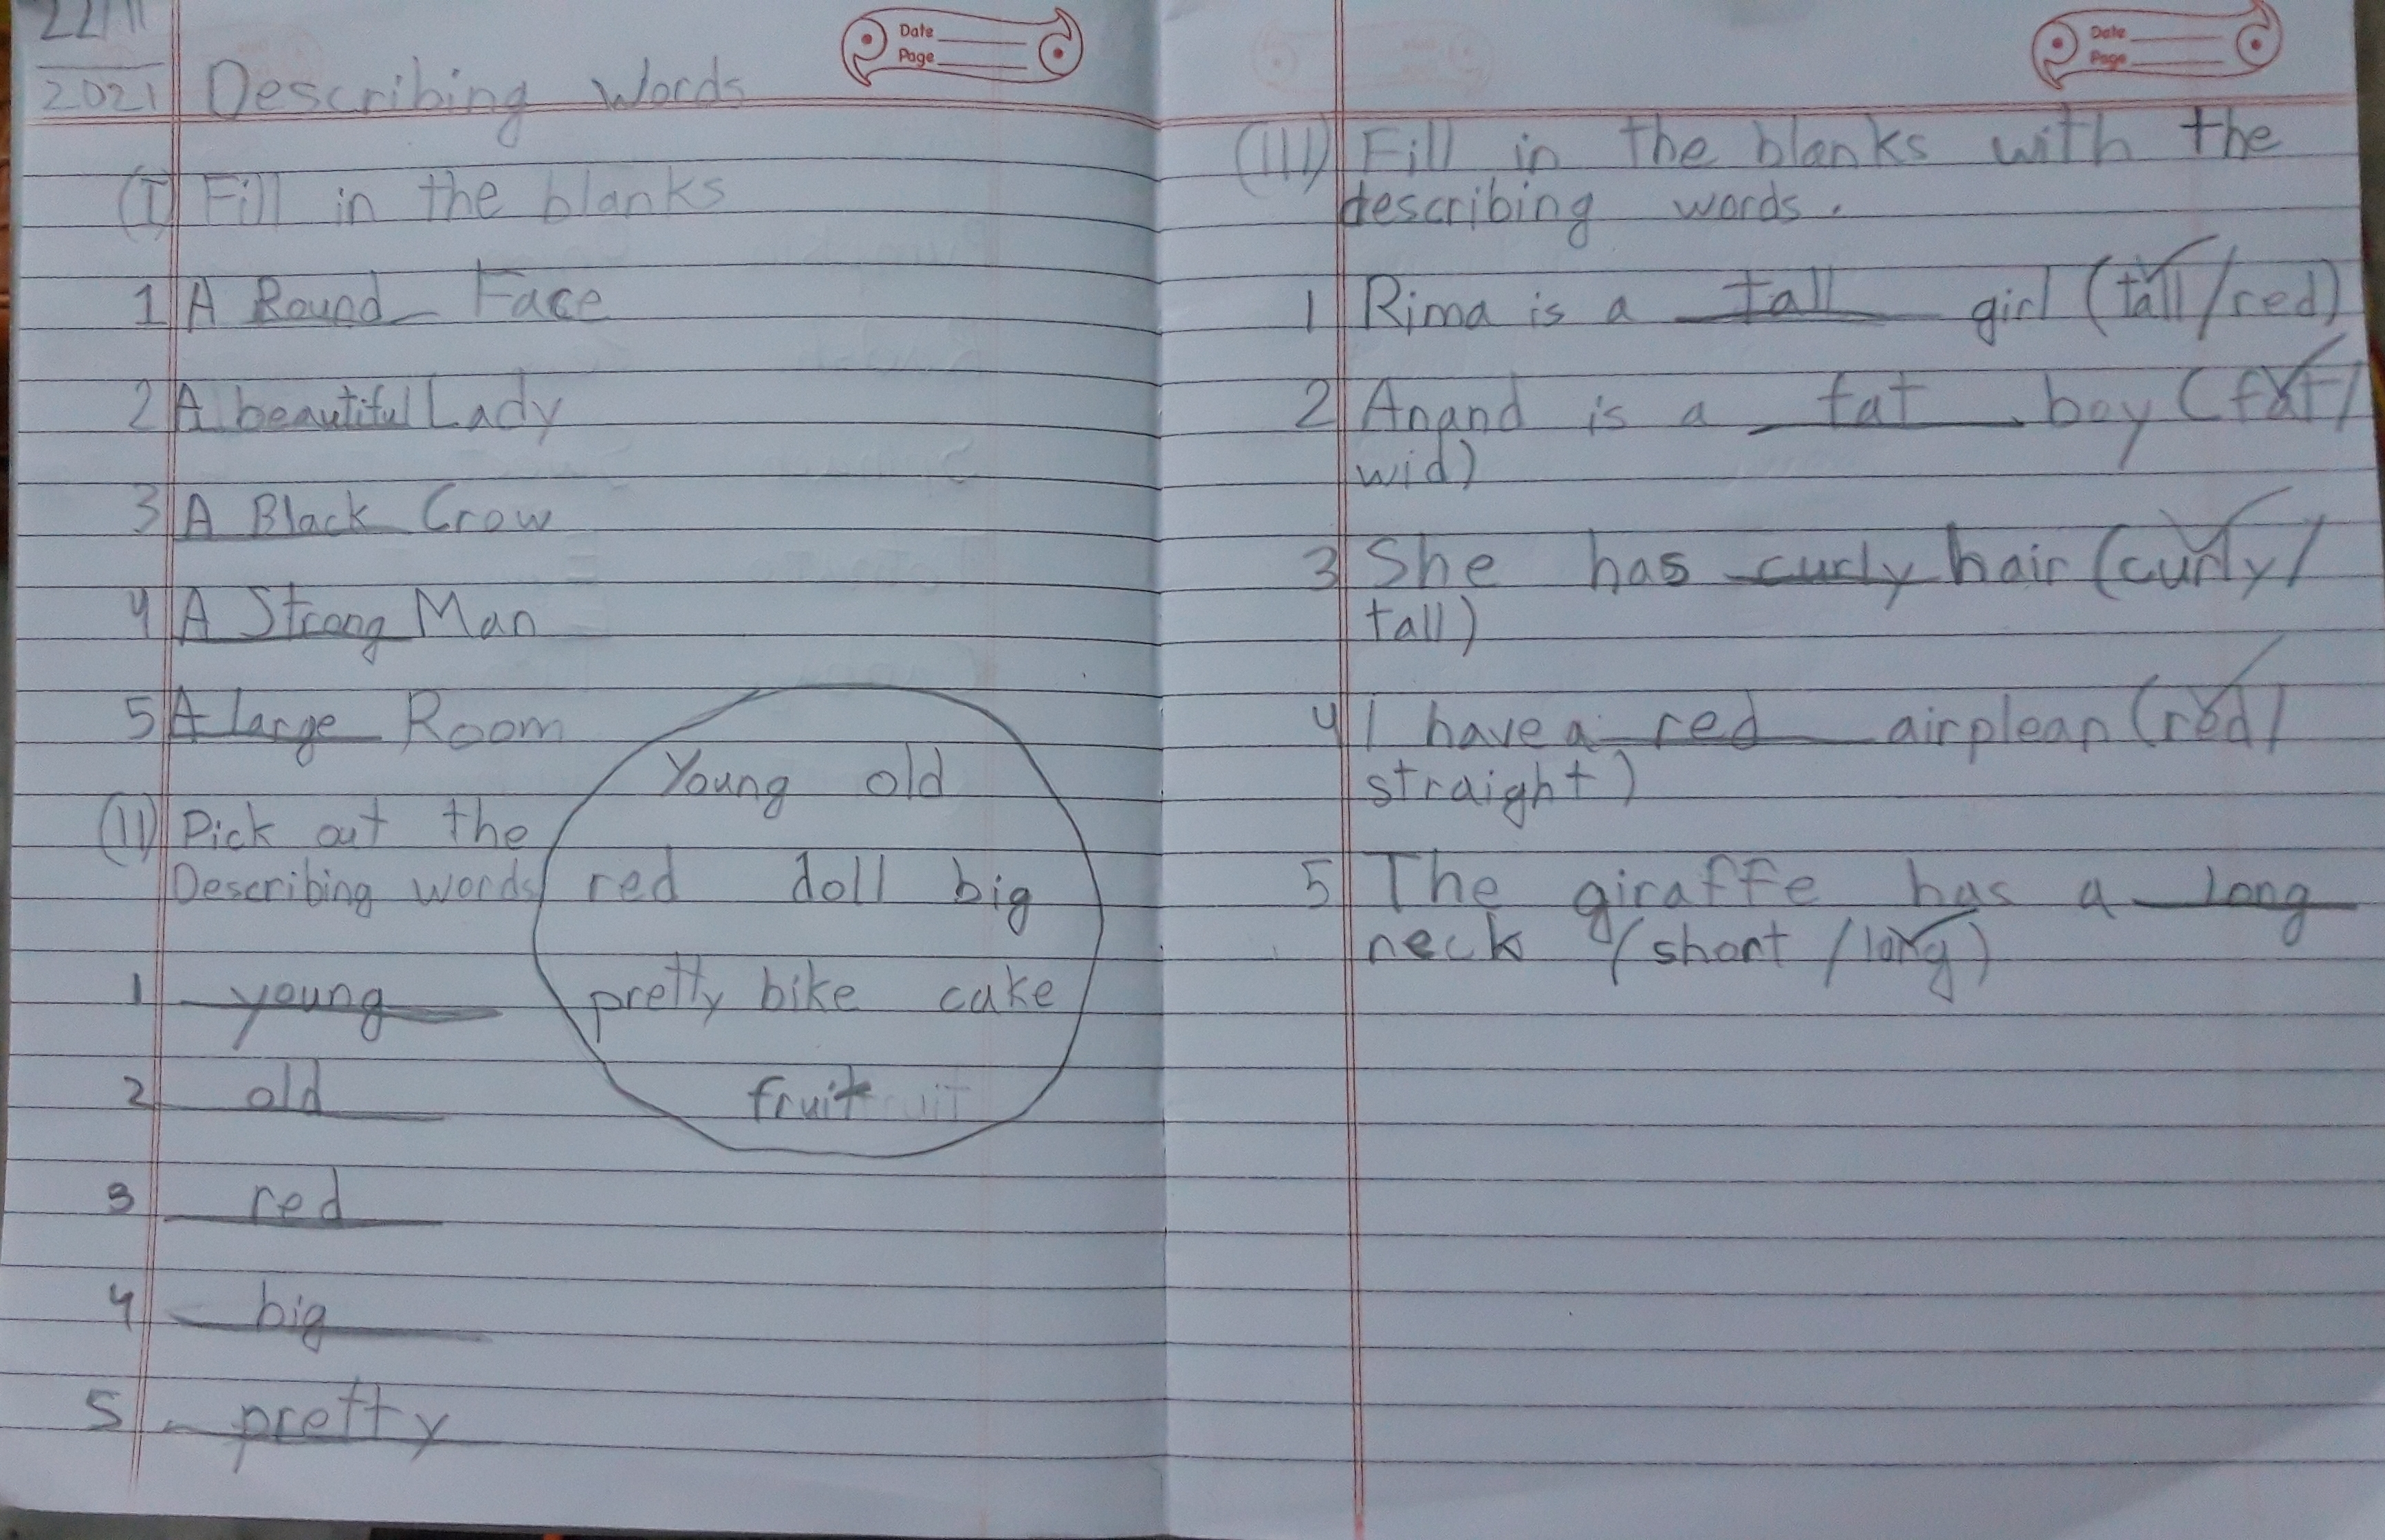 22/11
2021
Date
Page
Describing Words
(I) Fill in the blanks
1 A Round Face
2 A beautiful Lady
3 A Black Crow
4 A Strong Man
5 A large Room
(II) Pick out the
Describing words
Young old
red doll big
pretty bike cake
fruit
1 young
2 old
3 red
4 big
5 pretty
Date
Page
(III) Fill in the blanks with the
describing words.
1 Rima is a tall girl (tall/red)
2 Anand is a fat boy (fat/
wid)
3 She has curly hair (curly/
tall)
4 I have a red airplean (red/
straight)
5 The giraffe has a long
neck (short /long)